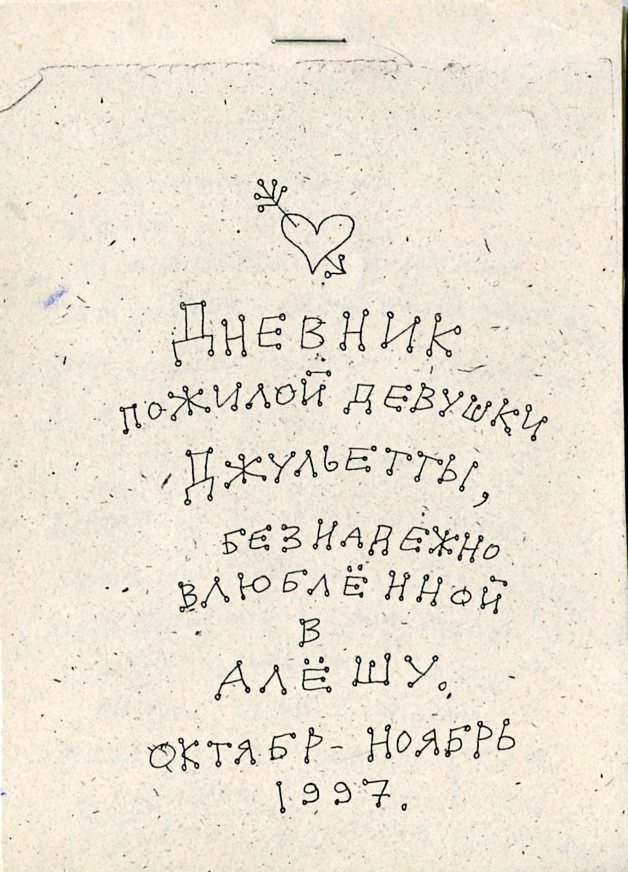 Дневник
пожилой девушки
Джульетты,
безнадёжно
влюблённой
в
Алёшу.
Октябр-ноябрь
1997.